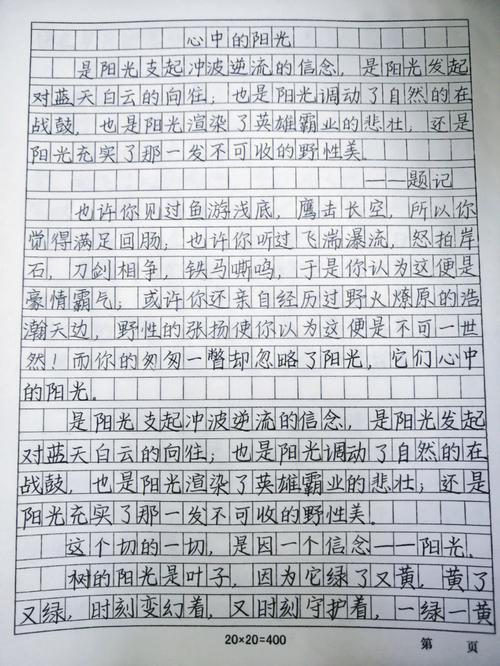 心中的阳光
是阳光支起冲波逆流的信念，是阳光发起
对蓝天白云的向往；也是阳光调动了自然的在
战鼓，也是阳光渲染了英雄霸业的悲壮；还是
阳光充实了那一发不可收的野性美。
——题记
也许你见过鱼游浅底，鹰击长空，所以你
觉得满足回肠；也许你听过飞湍瀑流，怒拍岸
石，刀剑相争，铁马嘶鸣，于是你认为这便是
豪情霸气；或许你还亲自经历过野火燎原的浩
瀚天边，野性的张扬使你以为这便是不可一世
然！而你的匆匆一瞥却忽略了阳光，它们心中
的阳光。
是阳光支起冲波逆流的信念，是阳光发起
对蓝天白云的向往；也是阳光调动了自然的在
战鼓，也是阳光渲染了英雄霸业的悲壮；还是
阳光充实了那一发不可收的野性美。
这个切的一切，是因一个信念——阳光。
树的阳光是叶子，因为它绿了又黄，黄了
又绿，时刻变幻着，又时刻守护着，一绿一黄
20×20=400
第 页